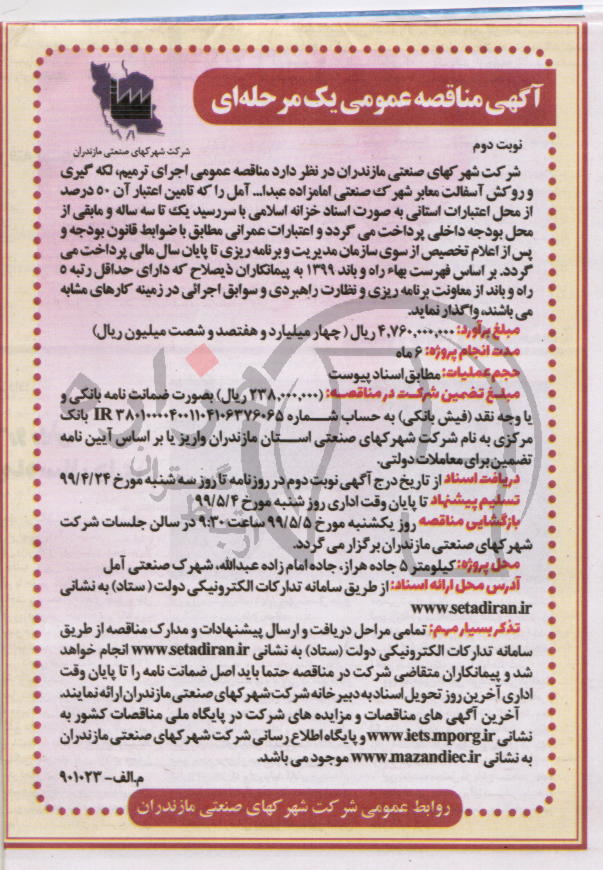 آگهی مناقصه عمومی یک مرحله‌ای
شرکت شهرکهای صنعتی مازندران
نوبت دوم
شرکت شهرکهای صنعتی مازندران در نظر دارد مناقصه عمومی اجرای ترمیم، لکه گیری
و روکش آسفالت معابر شهرک صنعتی امامزاده عبدا... آمل را که تامین اعتبار آن ۵۰ درصد
از محل اعتبارات استانی به صورت اسناد خزانه اسلامی با سررسید یک تا سه ساله و مابقی از
محل بودجه داخلی پرداخت می گردد و اعتبارات عمرانی مطابق با ضوابط قانون بودجه و
پس از اعلام تخصیص از سوی سازمان مدیریت و برنامه ریزی تا پایان سال مالی پرداخت می
گردد. بر اساس فهرست بهاء راه و باند ۱۳۹۹ به پیمانکاران ذیصلاح که دارای حداقل رتبه ۵
راه و باند از معاونت برنامه ریزی و نظارت راهبردی و سوابق اجرائی در زمینه کارهای مشابه
می باشند، واگذار نماید.
مبلغ برآورد: ۴,۷۶۰,۰۰۰,۰۰۰ ریال ( چهار میلیارد و هفتصد و شصت میلیون ریال)
مدت انجام پروژه: ۶ ماه
حجم عملیات: مطابق اسناد پیوست
مبلغ تضمین شرکت در مناقصه: (۲۳۸,۰۰۰,۰۰۰ ریال) بصورت ضمانت نامه بانکی و
یا وجه نقد (فیش بانکی) به حساب شماره IR ۳۸۰۱۰۰۰۰۴۰۰۱۱۰۴۱۰۶۳۷۶۰۶۵ بانک
مرکزی به نام شرکت شهرکهای صنعتی استان مازندران واریز یا بر اساس آیین نامه
تضمین برای معاملات دولتی.
دریافت اسناد از تاریخ درج آگهی نوبت دوم در روزنامه تا روز سه شنبه مورخ ۹۹/۴/۲۴
تسلیم پیشنهاد تا پایان وقت اداری روز شنبه مورخ ۹۹/۵/۴
بازگشایی مناقصه روز یکشنبه مورخ ۹۹/۵/۵ ساعت ۹:۳۰ در سالن جلسات شرکت
شهرکهای صنعتی مازندران برگزار می گردد.
محل پروژه: کیلومتر ۵ جاده هراز، جاده امام زاده عبدالله، شهرک صنعتی آمل
آدرس محل ارائه اسناد: از طریق سامانه تدارکات الکترونیکی دولت ( ستاد) به نشانی
www.setadiran.ir
تذکر بسیار مهم: تمامی مراحل دریافت و ارسال پیشنهادات و مدارک مناقصه از طریق
سامانه تدارکات الکترونیکی دولت (ستاد) به نشانی www.setadiran.ir انجام خواهد
شد و پیمانکاران متقاضی شرکت در مناقصه حتما باید اصل ضمانت نامه را تا پایان وقت
اداری آخرین روز تحویل اسناد به دبیرخانه شرکت شهرکهای صنعتی مازندران ارائه نمایند.
آخرین آگهی های مناقصات و مزایده های شرکت در پایگاه ملی مناقصات کشور به
نشانی www.iets.mporg.ir و پایگاه اطلاع رسانی شرکت شهرکهای صنعتی مازندران
به نشانی www.mazandiec.ir موجود می باشد.
م.الف- ۹۰۱۰۲۳
روابط عمومی شرکت شهرکهای صنعتی مازندران